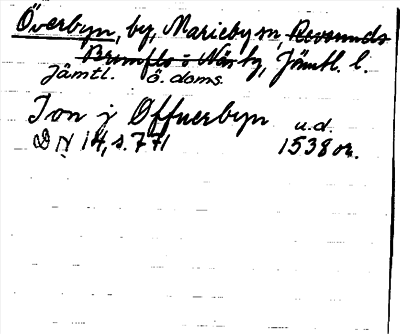 Överbyn, by, Marieby sn, Revsunds
Brunflo o Näs tg, Jämtl. l.
Jämtl. ö. doms.
Jon j Offuerbyn u.d.
DN 14, s. 771 1538 or.